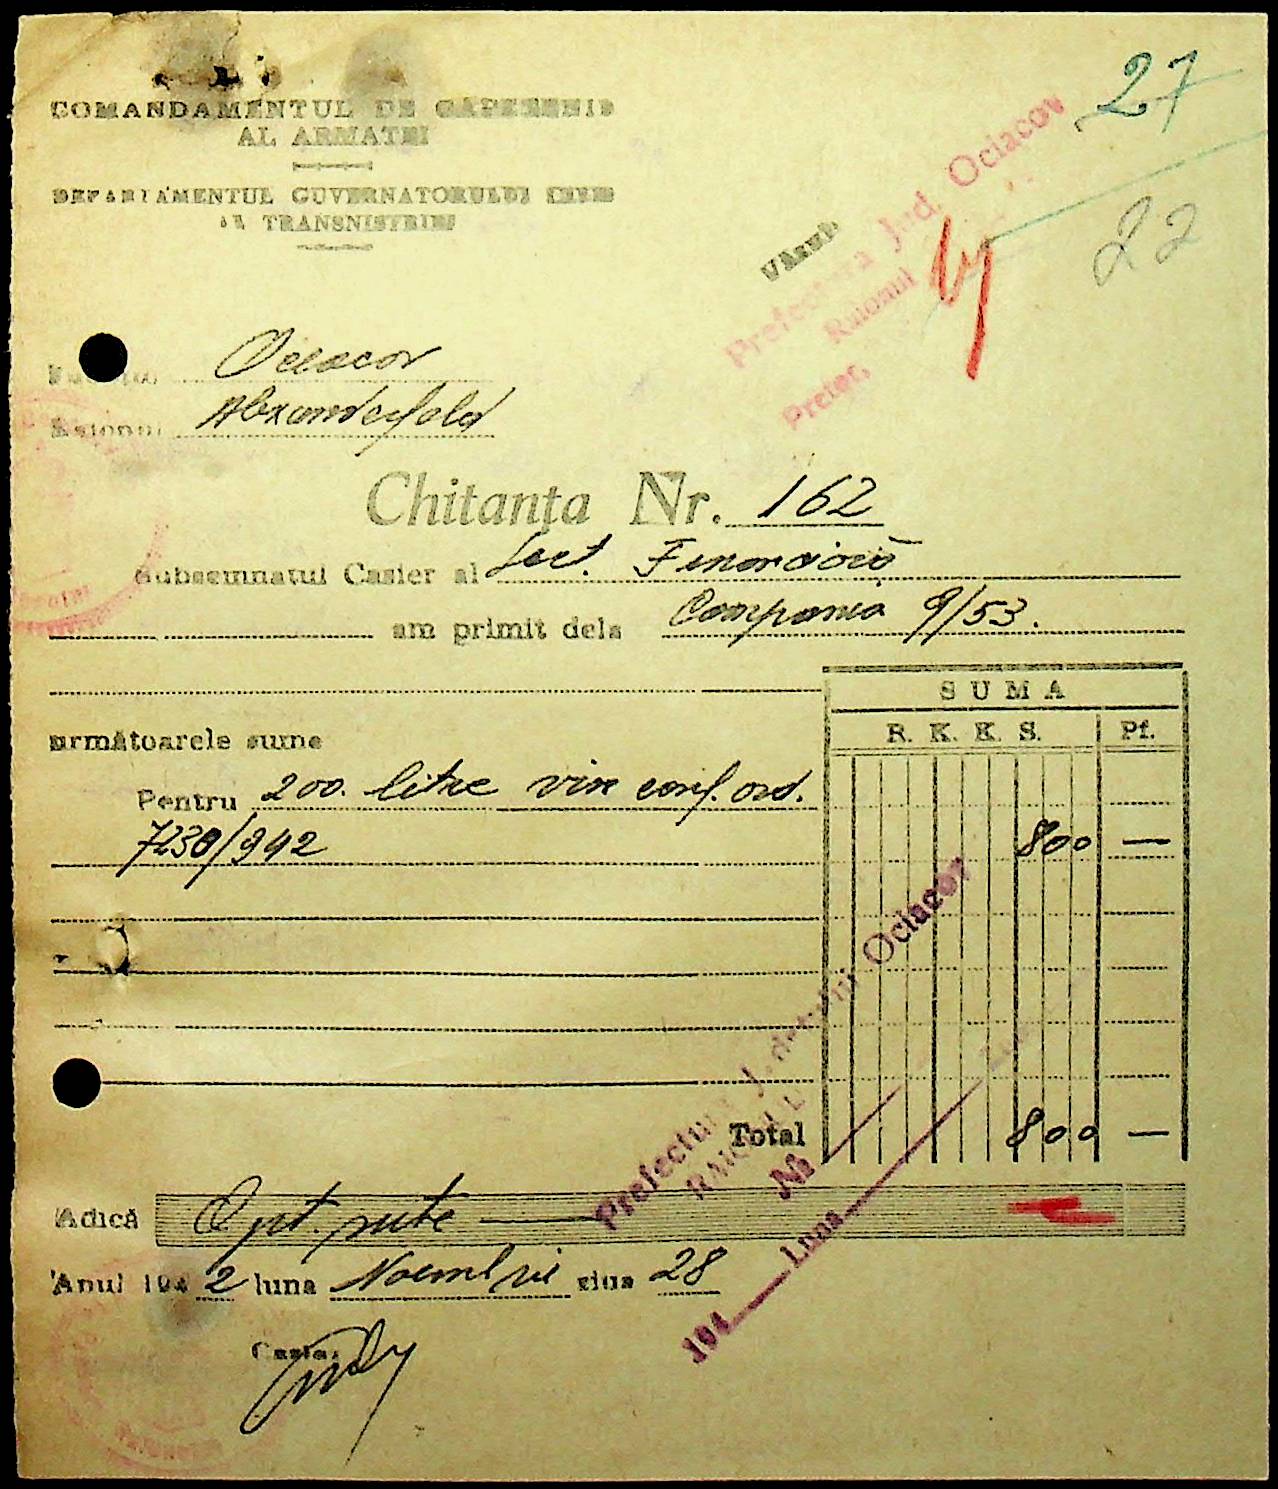 COMANDAMENTUL DE CĂPETENIE
AL ARMATEI
DEPARTAMENTUL GUVERNATORULUI CIVIL
AL TRANSNISTRIEI
27
22
Văzut
Prefectura Jud. Ociacov
Raionul
Pretor,
Ociacov
Alexanderfeld
Chitanța Nr. 162
Subsemnatul Casier al Sect. Financiară
am primit dela Compania 9/53.
SUMA
următoarele sume
R. K. K. S. Pf.
Pentru 200. litre vin conf. ord.
7230/942 800 —
Total 800 —
Prefectura Județului Ociacov
RAIONUL
№
194 Luna Ziua
Adică Opt. sute
Anul 1942 luna Noembrie ziua 28
Casier